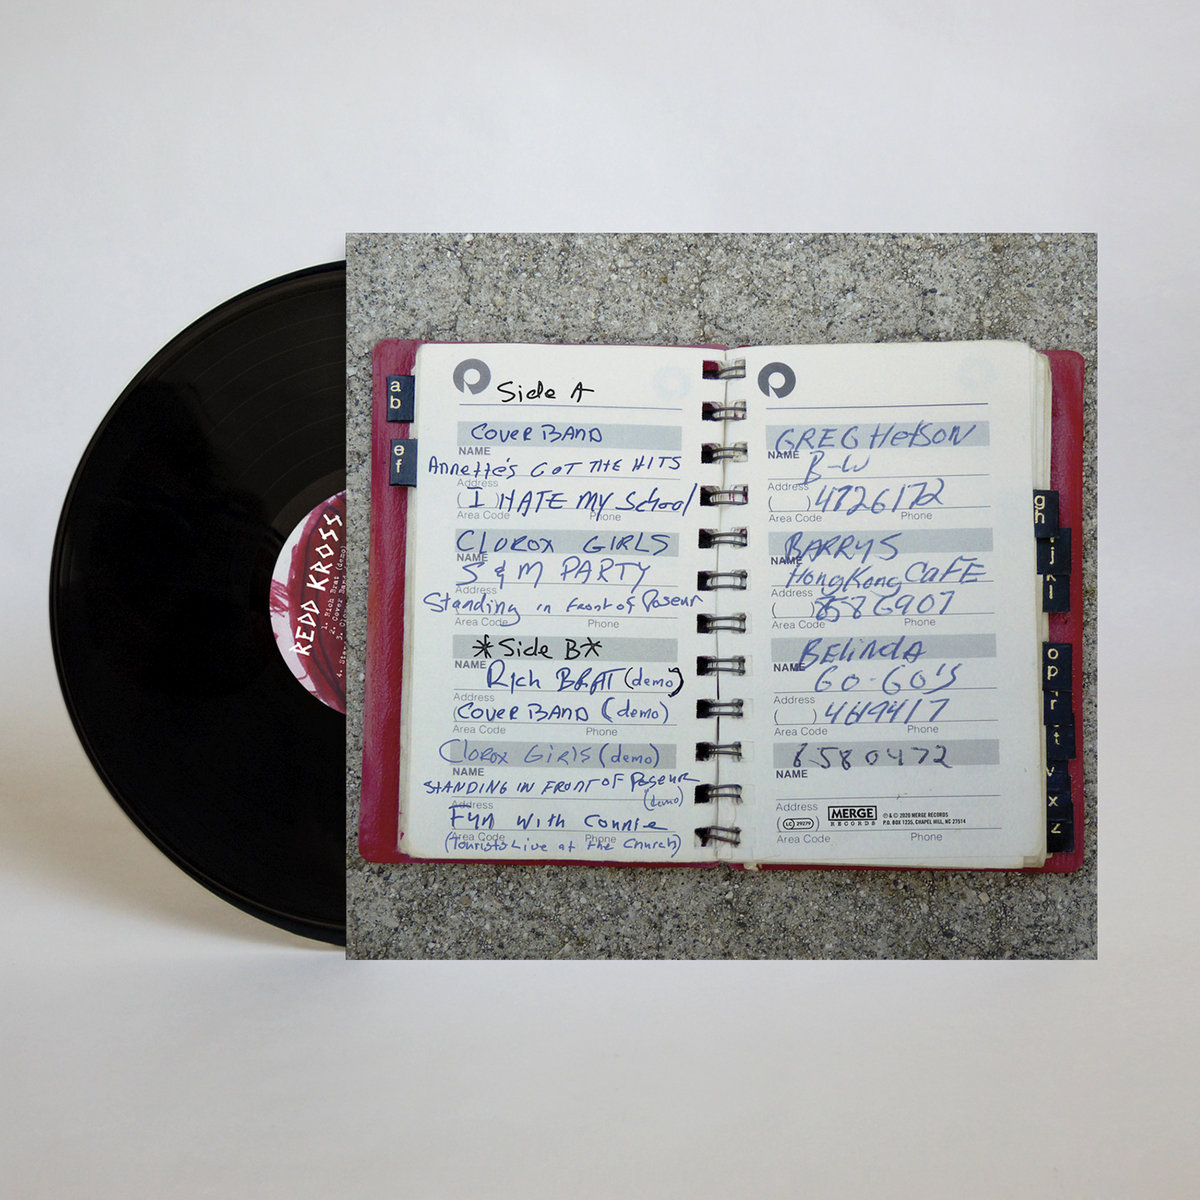 REDD KROSS
1. Rich Brat (demo)
2. Cover Ba
a
b
e
f
Side A
COVER BAND
NAME
Annette's GOT THE HITS
Address
I HATE MY School
Area Code Phone
CLOROX GIRLS
NAME
S & M PARTY
Address
Standing in Front of Poseur
Area Code Phone
*Side B*
NAME
Rich BRAT (demo)
Address
COVER BAND (demo)
Area Code Phone
Clorox Girls (demo)
NAME
STANDING IN FRONT OF Poseur
(demo)
Address
Fun with Connie
Area Code Phone
(Tourists Live at the Church)
GREG HetSON
NAME
B-W
Address
( ) 4726172
Area Code Phone
BARRYS
NAME
HongKong CaFE
Address
( ) 8586907
Area Code Phone
BELINDA
NAME
GO-GO'S
Address
( ) 4619417
Area Code Phone
8580472
NAME
Address
LC 29279
MERGE
RECORDS
℗ & © 2020 MERGE RECORDS
P.O. BOX 1235, CHAPEL HILL, NC 27514
Area Code Phone
g
h
j
l
o
p
r
t
v
x
z